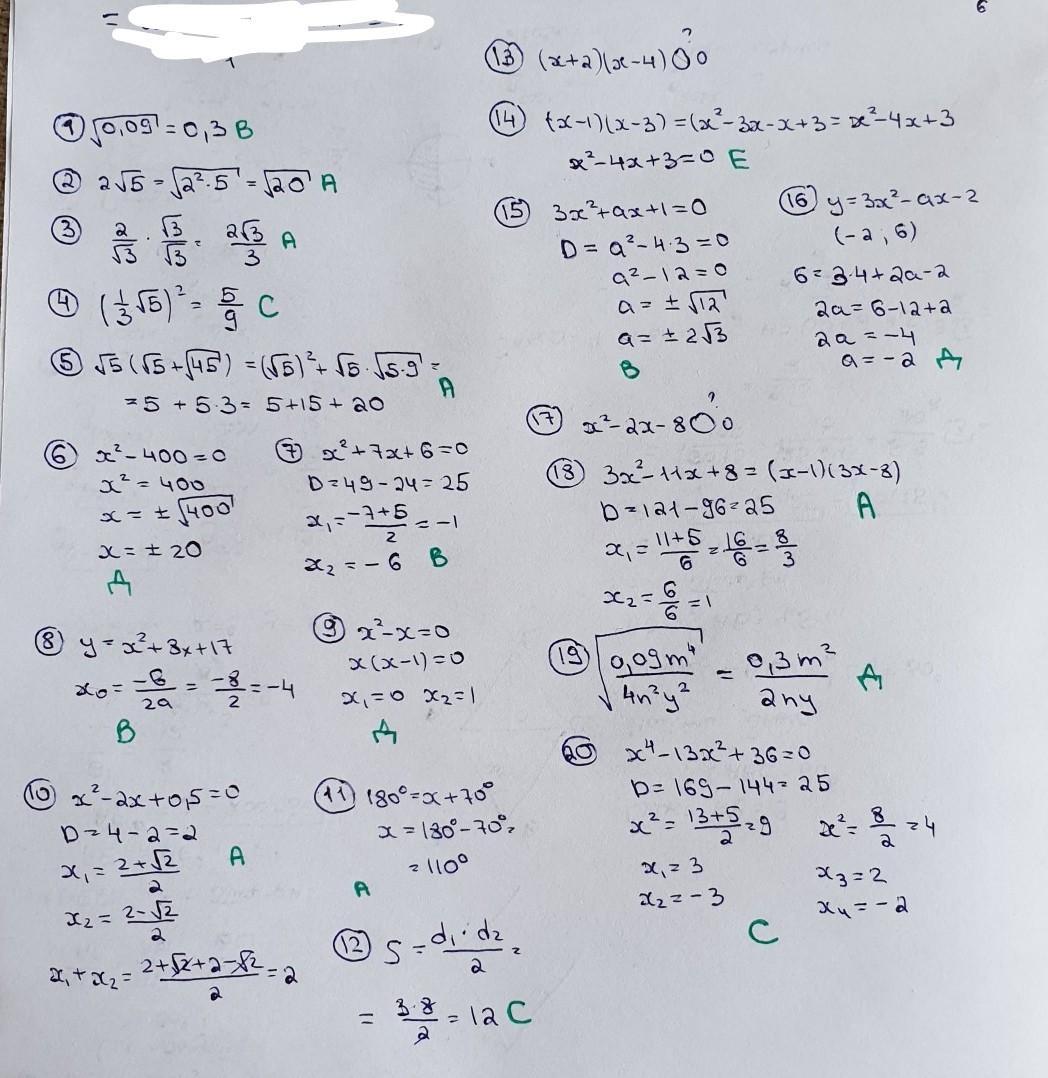 6
① √0,09 = 0,3 B
② 2√5 = √(2²·5) = √20 A
③ 2/√3 · √3/√3 = 2√3/3 A
④ (1/3 √5)² = 5/9 C
⑤ √5 (√5 + √45) = (√5)² + √5 · √(5·9) =
= 5 + 5·3 = 5+15 + 20 A
⑥ x² - 400 = 0
x² = 400
x = ± √400
x = ± 20
Д
⑦ x² + 7x + 6 = 0
D = 49 - 24 = 25
x₁ = (-7+5)/2 = -1
x₂ = -6 B
⑧ y = x² + 8x + 17
x₀ = -б/2a = -8/2 = -4
B
⑨ x² - x = 0
x(x-1) = 0
x₁ = 0 x₂ = 1
Д
⑩ x² - 2x + 0,5 = 0
D = 4 - 2 = 2
x₁ = (2+√2)/2 A
x₂ = (2-√2)/2
x₁ + x₂ = (2+√2+2-√2)/2 = 2
⑪ 180° = x + 70°
x = 180° - 70° =
= 110°
A
⑫ S = d₁·d₂/2 =
= 3·8/2 = 12 C
⑬ (x+2)(x-4) ? 0
⑭ (x-1)(x-3) = (x² - 3x - x + 3 = x² - 4x + 3
x² - 4x + 3 = 0 E
⑮ 3x² + ax + 1 = 0
D = a² - 4·3 = 0
a² - 12 = 0
a = ± √12
a = ± 2√3
B
⑯ y = 3x² - ax - 2
(-2, 6)
6 = 3·4 + 2a - 2
2a = 6 - 12 + 2
2a = -4
a = -2 Д
⑰ x² - 2x - 8 ? 0
⑱ 3x² - 11x + 8 = (x-1)(3x-8)
D = 121 - 96 = 25 A
x₁ = (11+5)/6 = 16/6 = 8/3
x₂ = 6/6 = 1
⑲ √(0,09m⁴/4n²y²) = 0,3m²/2ny Д
⑳ x⁴ - 13x² + 36 = 0
D = 169 - 144 = 25
x² = (13+5)/2 = 9 x² = 8/2 = 4
x₁ = 3 x₃ = 2
x₂ = -3 x₄ = -2
C